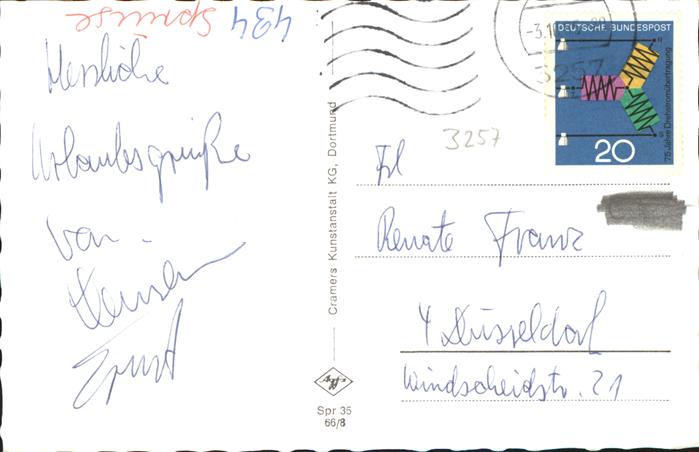 484 Sprüuse
Herzliche
Urlaubsgrüße
von
Ernst
Cramers Kunstanstalt KG, Dortmund
Agfa
Spr 35
66/8
-3.10.
3257
DEUTSCHE BUNDESPOST
75 Jahre Drehstromübertragung
20
3257
Frl
Renate Franz
4 Düsseldorf
Windscheidstr. 21